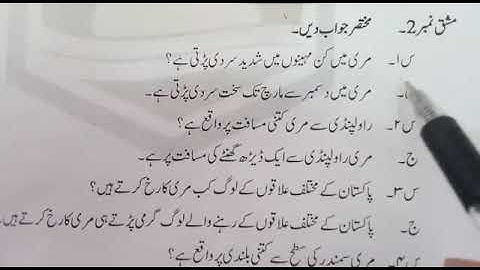 مشق نمبر 2۔ مختصر جواب دیں۔
س۱۔ مری میں کن مہینوں میں شدید سردی پڑتی ہے؟
مری میں دسمبر سے مارچ تک سخت سردی پڑتی ہے۔
س۲۔ راولپنڈی سے مری کتنی مسافت پر واقع ہے؟
ج۔ مری راولپنڈی سے ایک ڈیڑھ گھنٹے کی مسافت پر ہے۔
س۳۔ پاکستان کے مختلف علاقوں کے لوگ کب مری کا رخ کرتے ہیں؟
ج۔ پاکستان کے مختلف علاقوں کے رہنے والے لوگ گرمی پڑتے ہی مری کا رخ کرتے ہیں۔
س۴۔ مری سمندر کی سطح سے کتنی بلندی پر واقع ہے؟